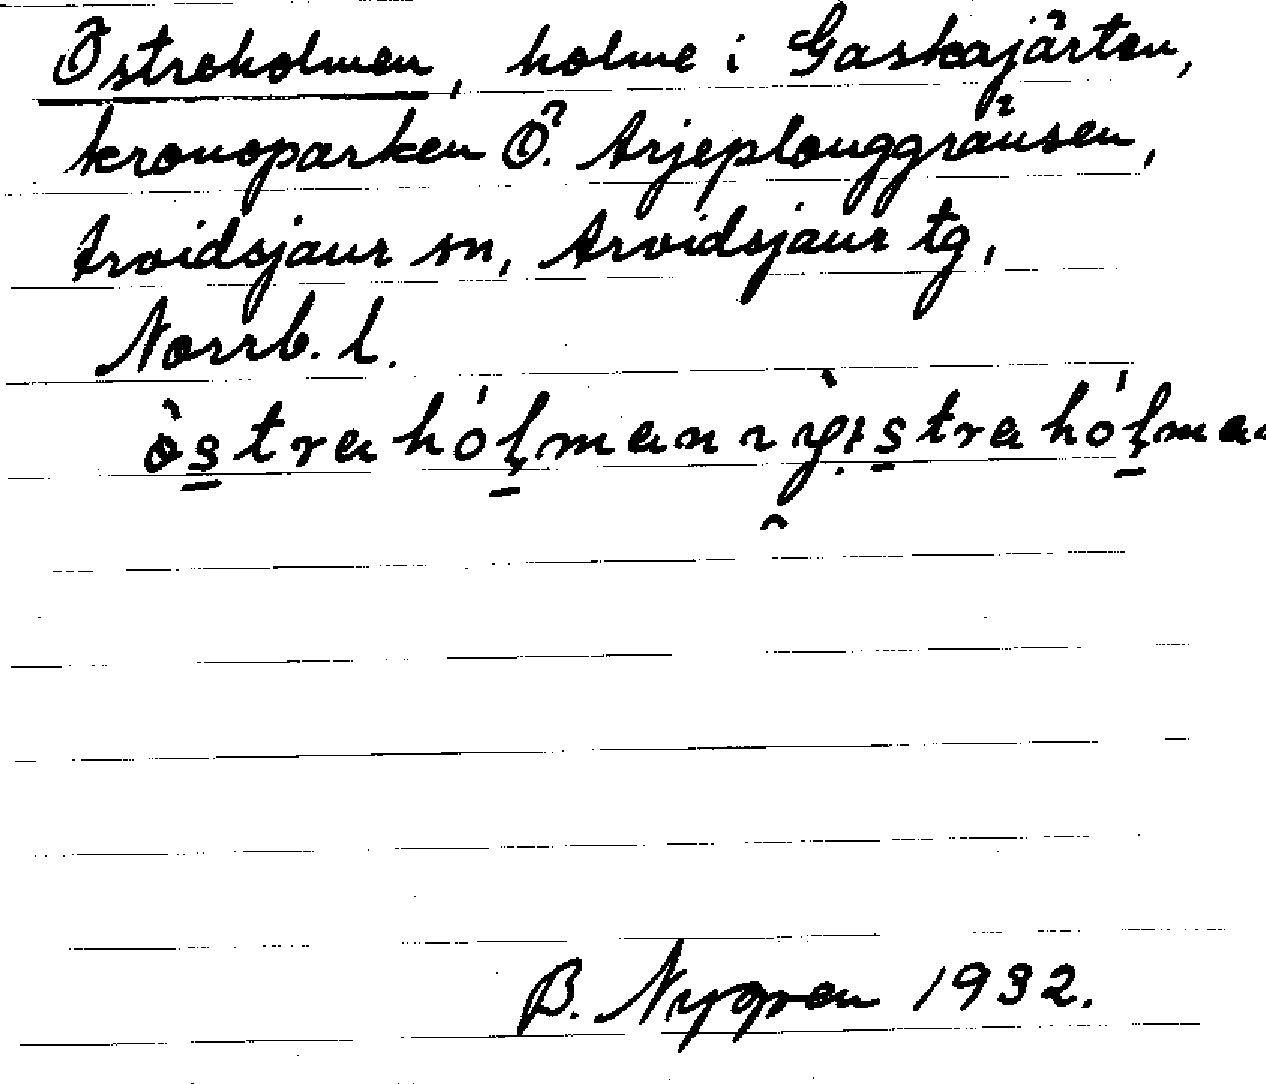 Östreholmen, holme i Gaskajärten,
kronoparken Ö. Arjeplouggränsen,
Arvidsjaur sn, Arvidsjaur tg,
Norrb. l.
òstrahólman
B. Nygren 1932.